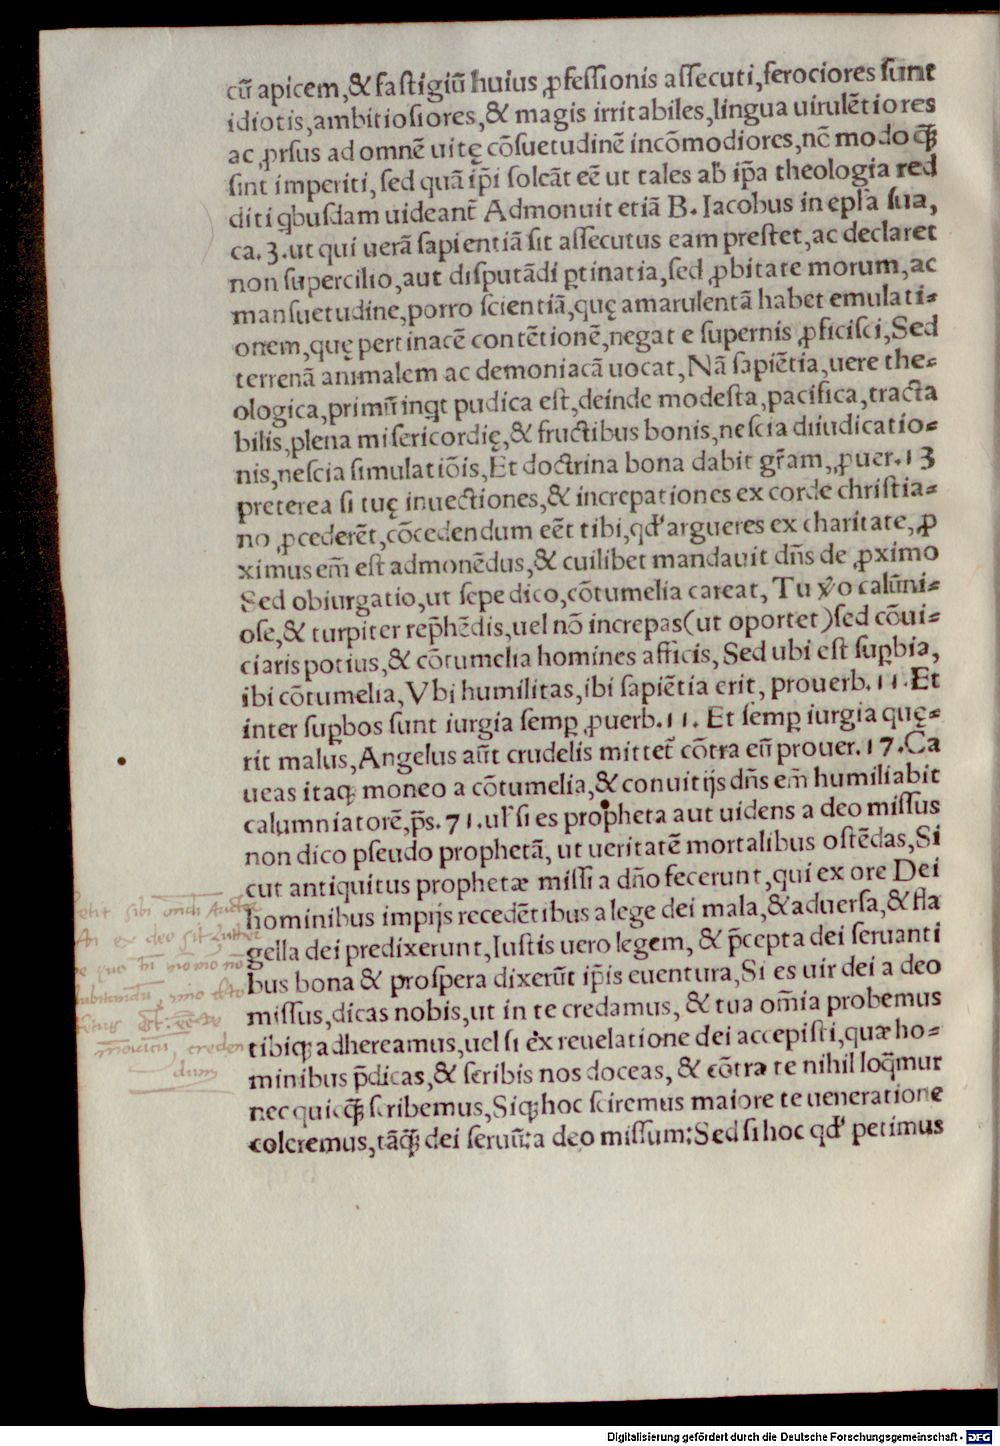 cū apicem,& fastigiū huius ꝓfessionis assecuti,ferociores sunt
idiotis,ambitiosiores,& magis irritabiles,lingua uirulētiores
ac ꝓrsus ad omnē uitę cōsuetudinē incōmodiores,nō modo qꝫ̄
sint imperiti, sed quā ip̄i soleāt eē ut tales ab ip̄a theologia red
diti qbusdam uideant᷑ Admonuit etiā B. Iacobus in epl̄a sua,
ca. 3. ut qui uerā sapientiā sit assecutus eam prestet,ac declaret
non supercilio,aut disputādi ꝑtinatia,sed ꝓbitate morum,ac
mansuetudine,porro scientiā,quę amarulentā habet emulati⸗
onem,quę pertinacē contētionē,negat e supernis ꝓficisci,Sed
terrenā animalem ac demoniacā uocat,Nā sapiētia,uere the⸗
ologica,primū inqt pudica est,deinde modesta,pacifica,tracta
bilis,plena misericordię,& fructibus bonis,nescia diiudicatio⸗
nis,nescia simulatiōis,Et doctrina bona dabit gr̄am,ꝓuer.13
preterea si tuę inuectiones,& increpationes ex corde christia⸗
no ꝓcederēt,cōcedendum eēt tibi,qd' argueres ex charitate,ꝓ
ximus em̄ est admonēdus,& cuilibet mandauit dn̄s de ꝓximo
Sed obiurgatio,ut sepe dico,cōtumelia careat, Tu v̊o calūni⸗
ose,& turpiter rep̄hēdis,uel nō increpas(ut oportet)sed cōui⸗
ciaris potius,& cōtumelia homines afficis, Sed ubi est suꝑbia,
ibi cōtumelia, Vbi humilitas,ibi sapiētia erit, prouerb. 11. Et
inter suꝑbos sunt iurgia semꝑ ꝓuerb. 11. Et semꝑ iurgia quę⸗
rit malus, Angelus aūt crudelis mittet᷑ cōtra eū prouer. 17. Ca
ueas itaqꝫ moneo a cōtumelia,& conuitijs dn̄s em̄ humiliabit
calumniatorē,p̄s. 71. ul' si es propheta aut uidens a deo missus
non dico pseudo prophetā, ut ueritatē mortalibus ostēdas, Si
cut antiquitus prophetæ missi a dn̄o fecerunt,qui ex ore Dei
hominibus impijs recedētibus a lege dei mala,& aduersa,& fla
gella dei predixerunt,Iustis uero legem, & p̄cepta dei seruanti
bus bona & prospera dixerūt ip̄is euentura,Si es uir dei a deo
missus,dicas nobis,ut in te credamus, & tua om̄ia probemus
tibiqꝫ adhereamus,uel si ex reuelatione dei accepisti,quæ ho⸗
minibus p̄dicas,& scribis nos doceas, & cōtra te nihil loq̄mur
nec quicqꝫ̄ scribemus,Siqꝫ hoc sciremus maiore te ueneratione
coleremus,tāqꝫ̄ dei seruū:a deo missum:Sed si hoc qd' petimus
sibi
An ex deo sit Luther
creden
dum
Digitalisierung gefördert durch die Deutsche Forschungsgemeinschaft - DFG